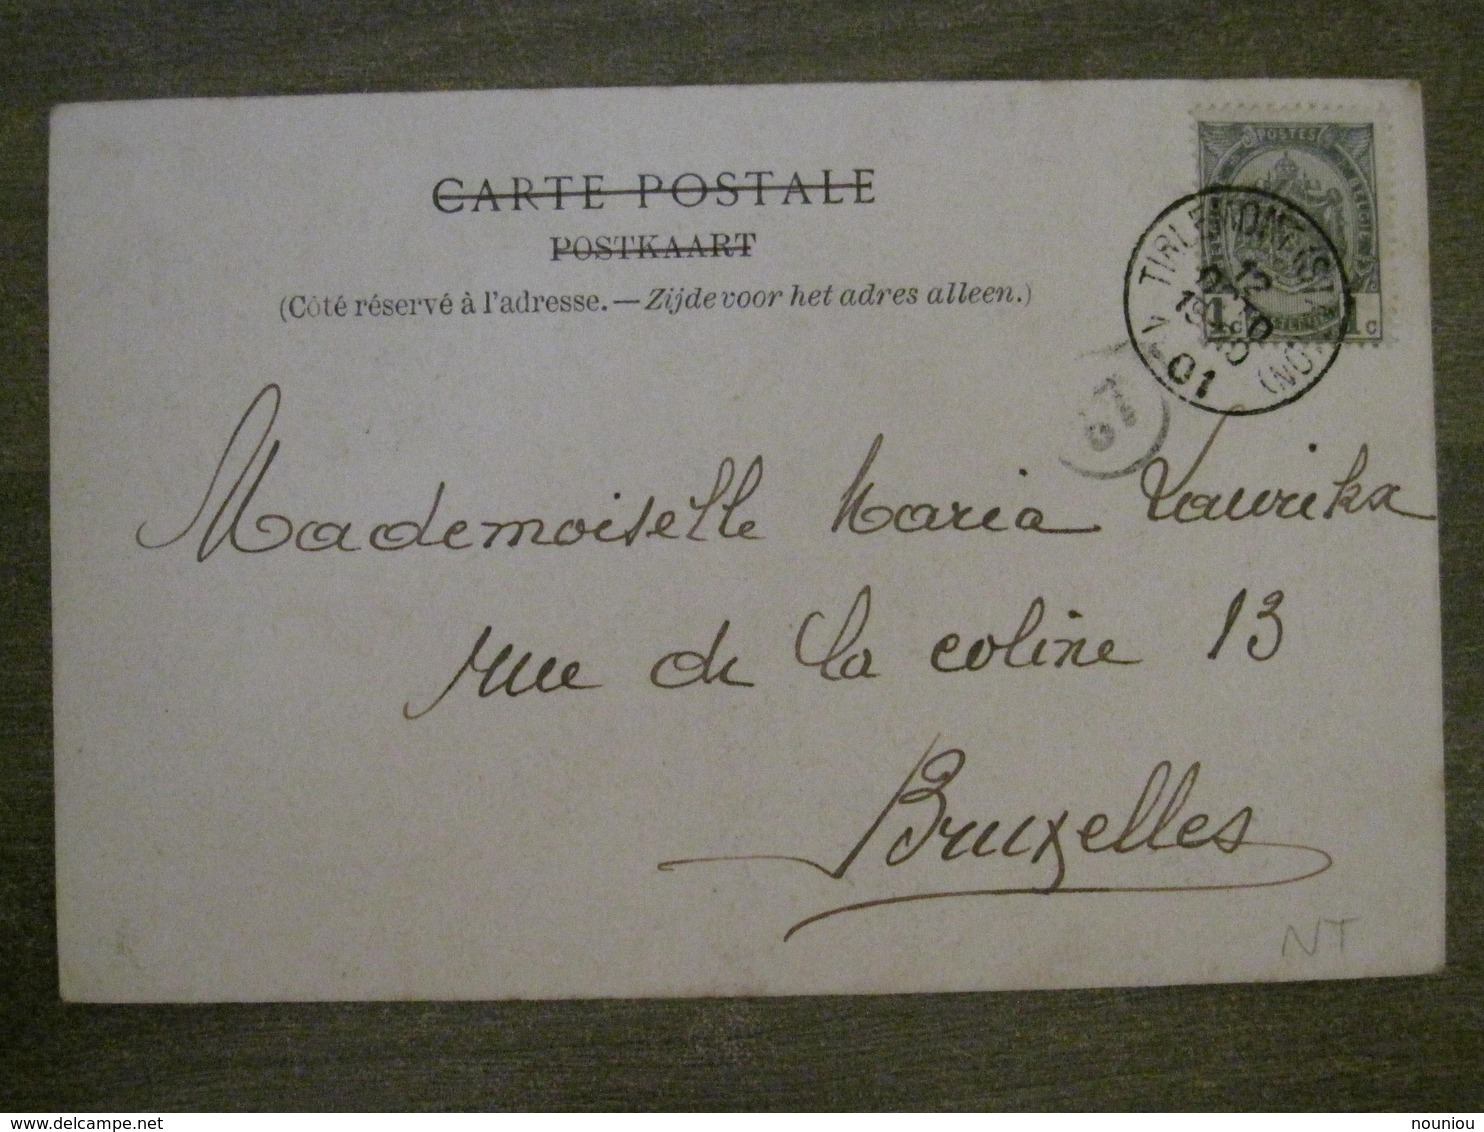 CARTE POSTALE
POSTKAART
(Côté réservé à l'adresse. — Zijde voor het adres alleen.)
POSTES
1c 1c
TIRLEMONT
12
01
Mademoiselle Maria
rue de la coline 13
Bruxelles
NT
delcampe.net
nouniou